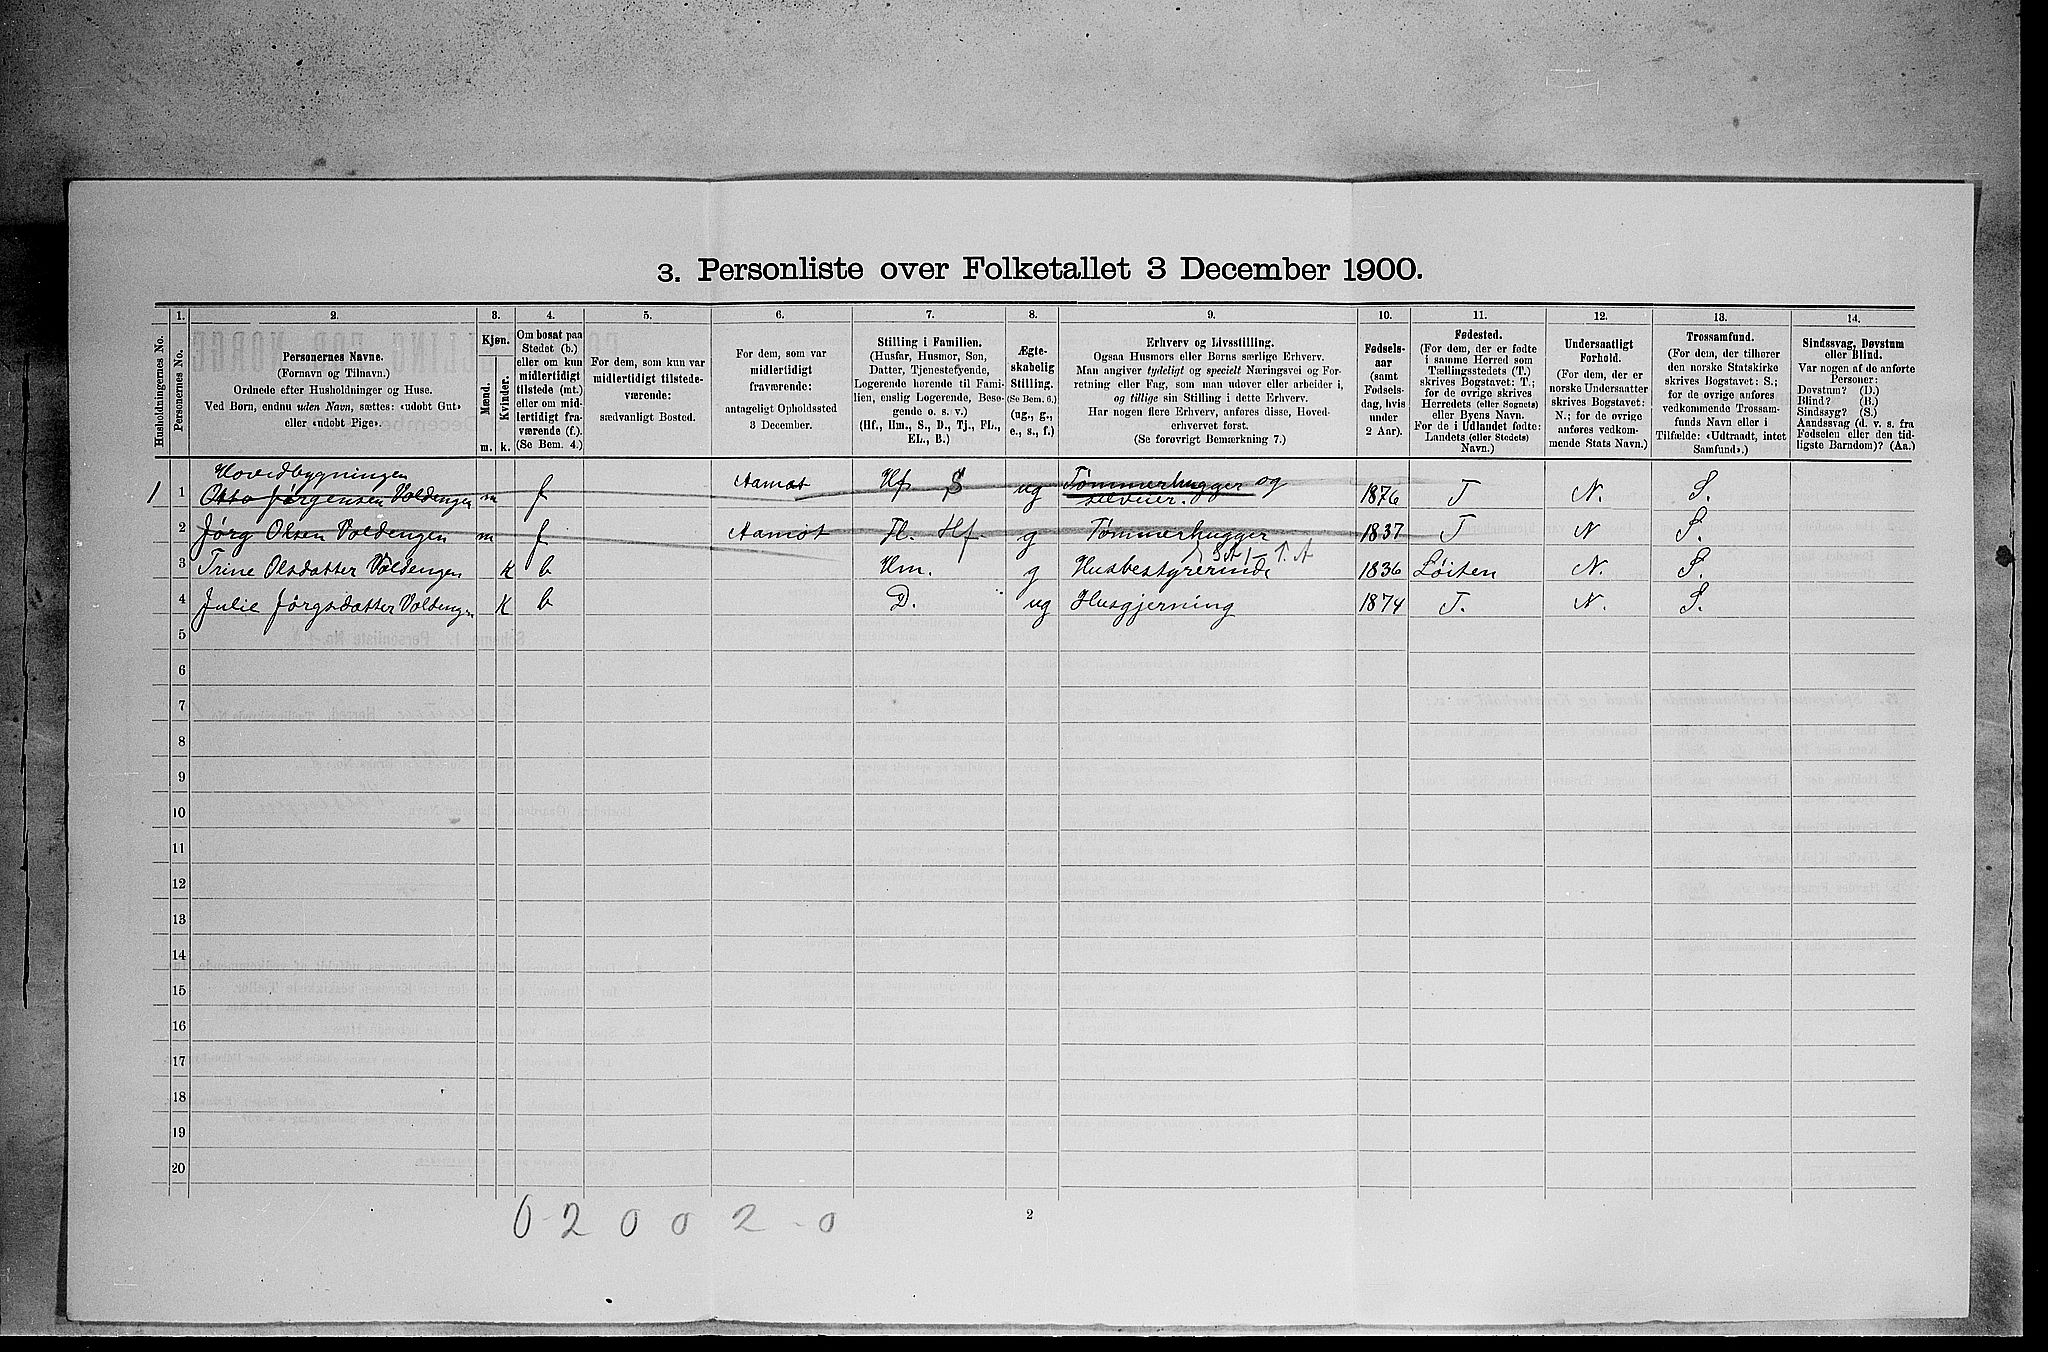 3. Personliste over Folketallet 3 December 1900.
Husholdningernes No.
1.
Personernes No.
2.
Personernes Navne.
(Fornavn og Tilnavn.)
Ordnede efter Husholdninger og Huse.
Ved Børn, endnu uden Navn, sættes: «udøbt Gut»
eller «udøbt Pige».
3.
Kjøn.
Mænd.
m.
Kvinder.
k.
4.
Om bosat paa
Stedet (b.)
eller om kun
midlertidigt
tilstede (mt.)
eller om mid-
lertidigt fra-
værende (f.).
(Se Bem. 4.)
5.
For dem, som kun var
midlertidigt tilstede-
værende:
sædvanligt Bosted.
6.
For dem, som var
midlertidigt
fraværende:
antageligt Opholdssted
3 December.
7.
Stilling i Familien.
(Husfar, Husmor, Søn,
Datter, Tjenestetyende,
Logerende hørende til Fami-
lien, enslig Logerende, Besø-
gende o. s. v.)
(Hf., Hm., S., D., Tj., FL.,
EL., B.)
8.
Ægte-
skabelig
Stilling.
(Se Bem. 6.)
(ug., g.,
e., s., f.)
9.
Erhverv og Livsstilling.
Ogsaa Husmors eller Børns særlige Erhverv.
Man angiver tydeligt og specielt Næringsvei og For-
retning eller Fag, som man udøver eller arbeider i,
og tillige sin Stilling i dette Erhverv.
Har nogen flere Erhverv, anføres disse, Hoved-
erhvervet først.
(Se forøvrigt Bemærkning 7.)
10.
Fødsels-
aar
(samt
Fødsels-
dag, hvis
under
2 Aar).
11.
Fødested.
(For dem, der er fødte
i samme Herred som
Tællingsstedets (T.)
skrives Bogstavet: T.;
for de øvrige skrives
Herredets (eller Sognets)
eller Byens Navn.
For de i Udlandet fødte:
Landets (eller Stedets)
Navn.)
12.
Undersaatligt
Forhold.
(For dem, der er
norske Undersaatter
skrives Bogstavet:
N.; for de øvrige
anføres vedkom-
mende Stats Navn.)
13.
Trossamfund.
(For dem, der tilhører
den norske Statskirke
skrives Bogstavet: S.;
for de øvrige anføres
vedkommende Trossam-
funds Navn eller i
Tilfælde: «Udtraadt, intet
Samfund».)
14.
Sindssvag, Døvstum
eller Blind.
Var nogen af de anførte
Personer:
Døvstum? (D.)
Blind? (B.)
Sindssyg? (S.)
Aandssvag (d. v. s. fra
Fødselen eller den tid-
ligste Barndom)? (Aa.)
Hovedbygningen
1 1 Otto Jørgensen Voldengen m f Aamot Hf S ug Tømmerhugger og 1876 T N. S.
2 Jørg Olsen Voldengen m f Aamot Fl. Hf. g Tømmerhugger 1837 T N S.
3 Trine Olsdatter Voldengen K b Hm. g Husbestyrerinde 1836 Løiten N. S.
4 Julie Jørgsdatter Voldengen K b D. ug Husgjerning 1874 T. N. S.
5
6
7
8
9
10
11
12
13
14
15
16
17
18
19
20
0-2 0 0 2-0
2